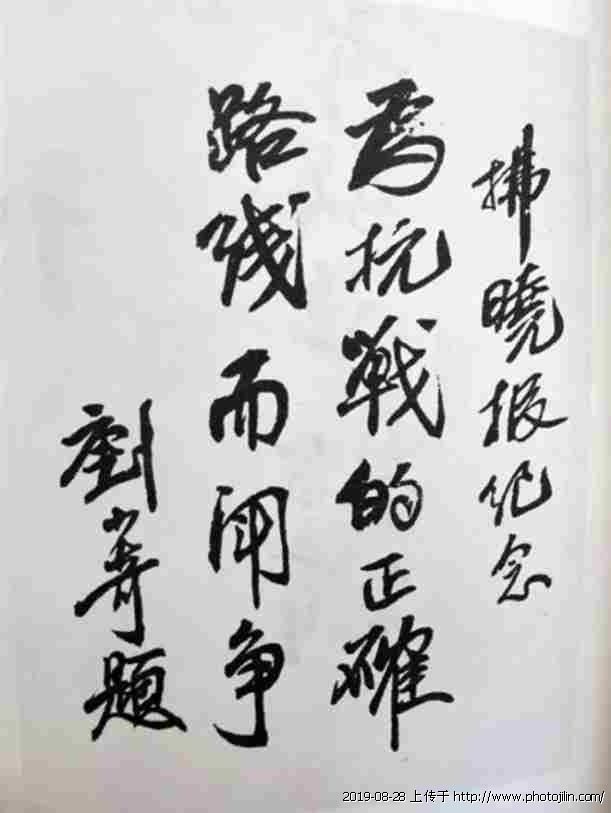 拂曉报纪念
为抗戰的正確
路线而闘争
劉少奇題
2019-08-28 上传于 http://www.photojilin.com/